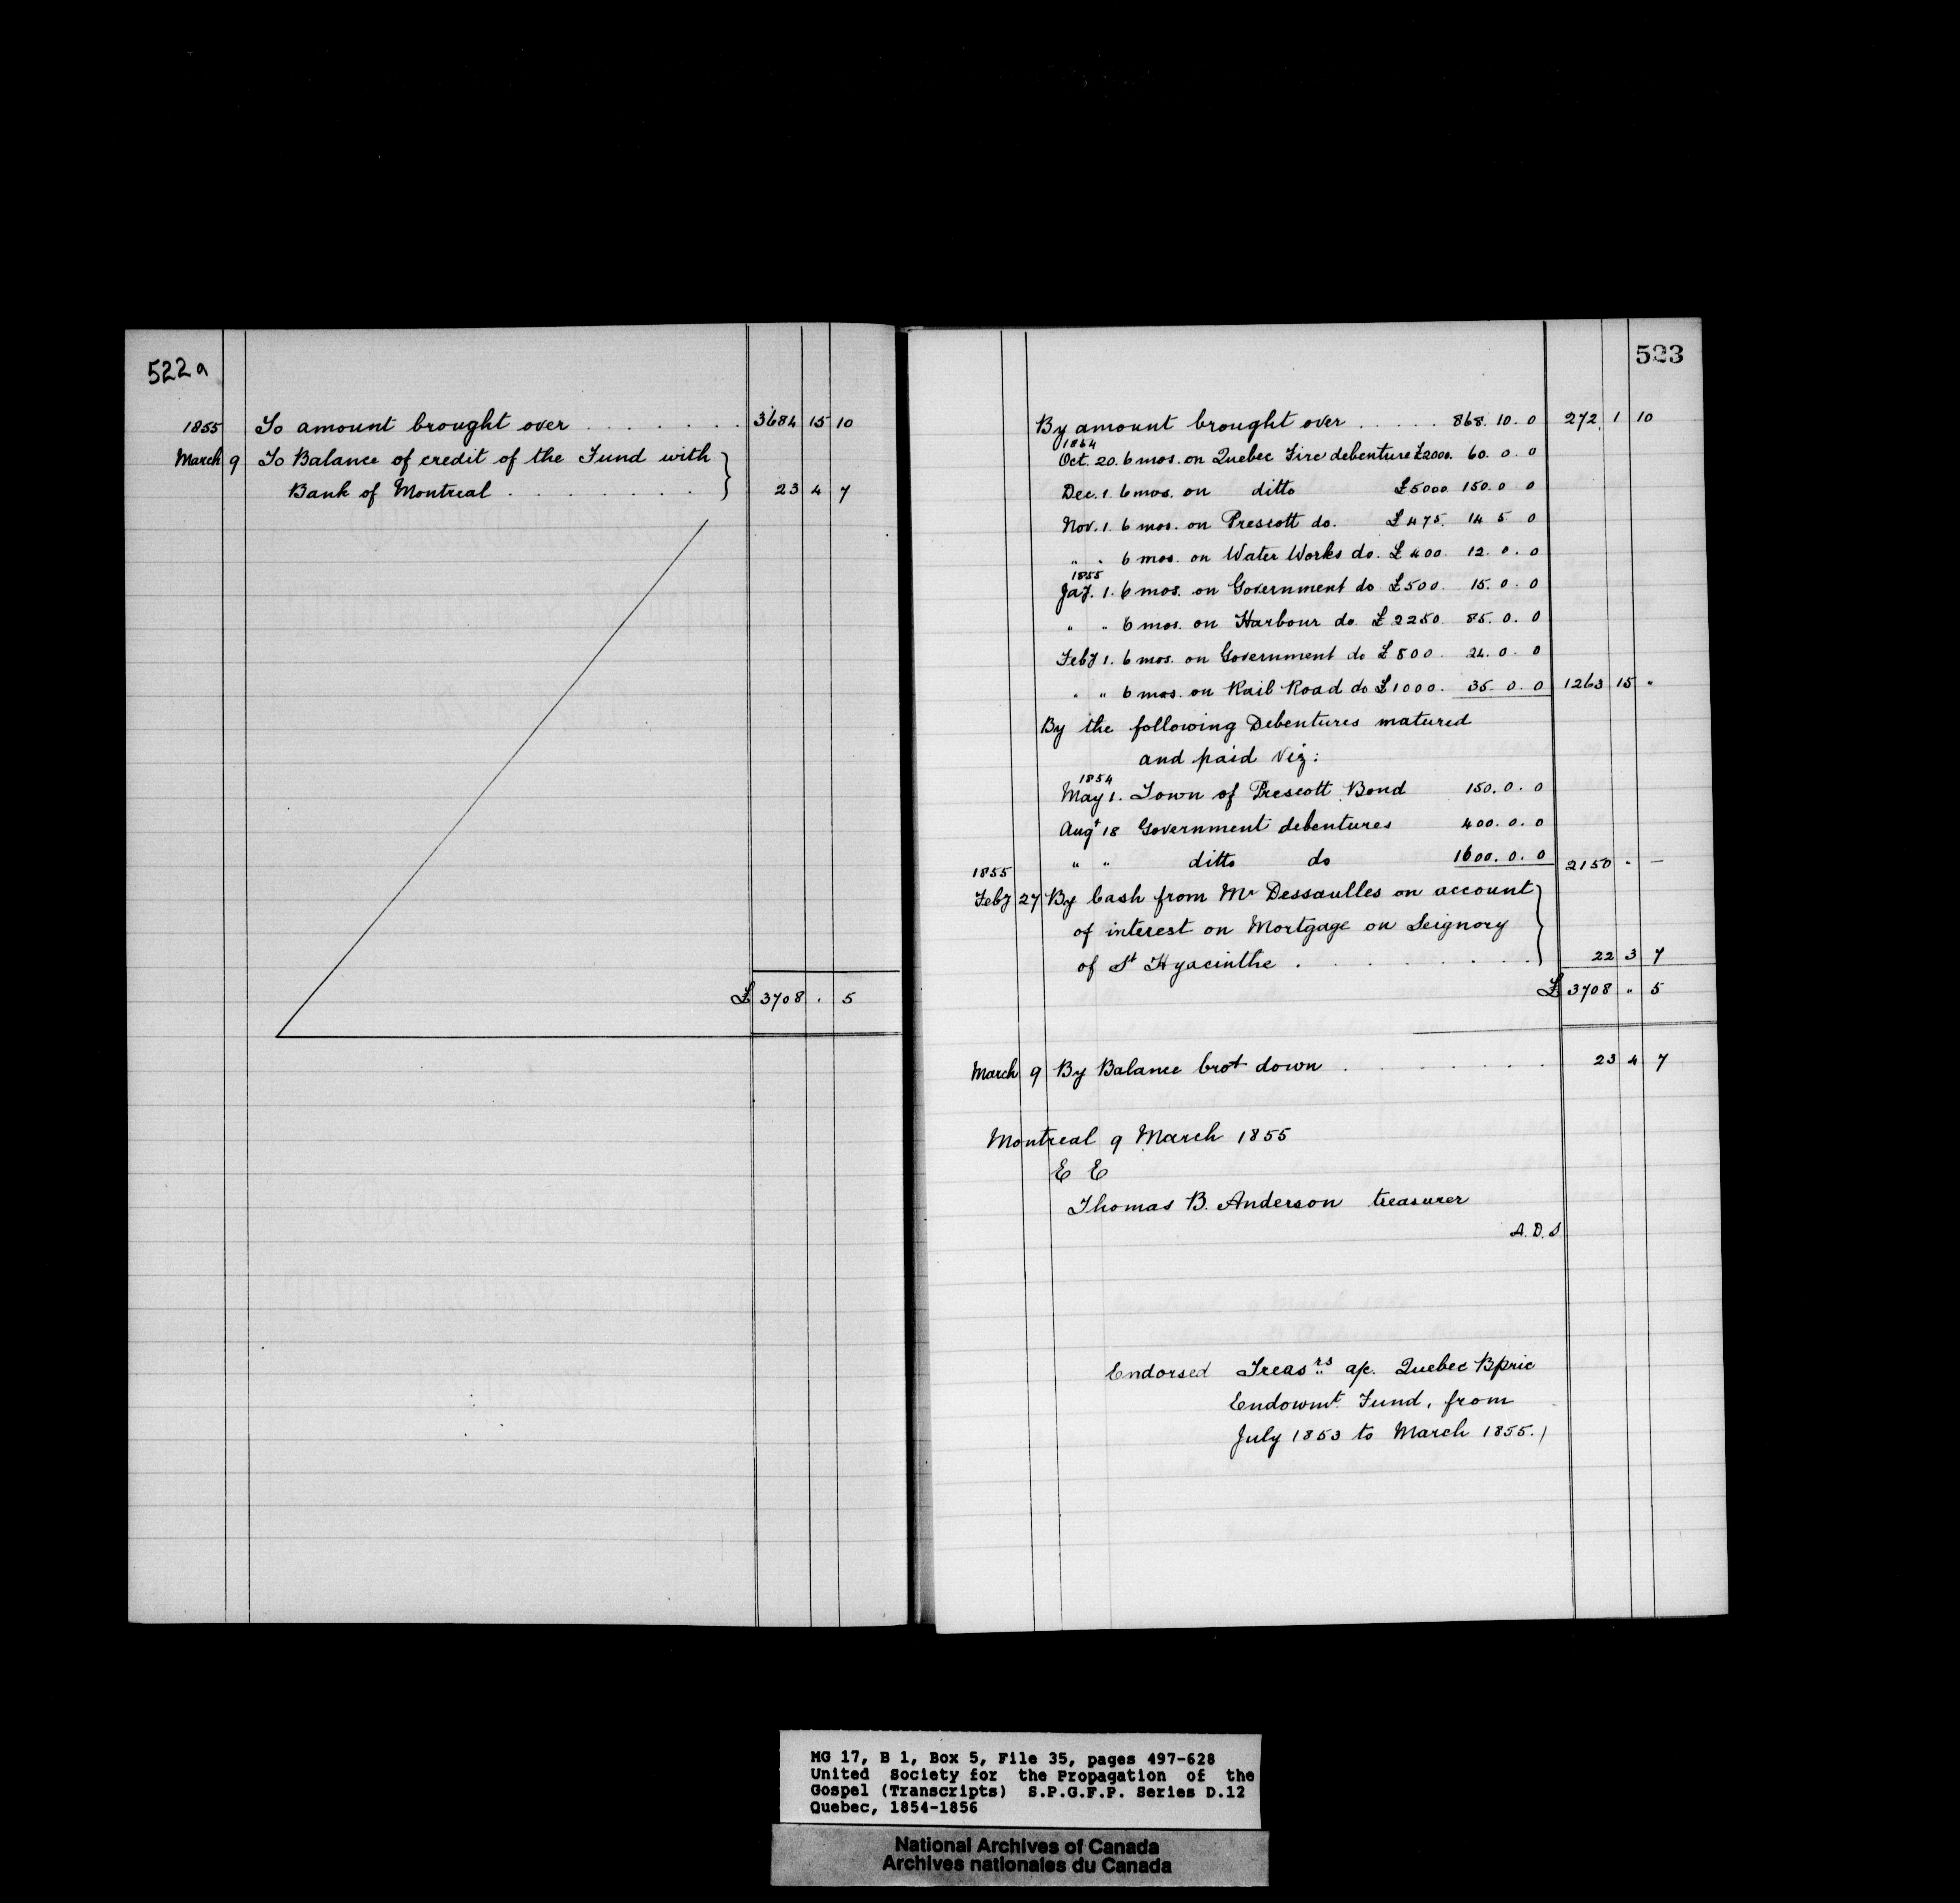 522a
1855 To amount brought over . . . . . . . . 3684 15 10
March 9 To Balance of credit of the Fund with
Bank of Montreal . . . . . . . . 23 4 7
£ 3708 . 5
523
By amount brought over . . . . . 868. 10. 0 272. 1 10
1854
Oct. 20. 6 mos. on Quebec Fire debenture £2000. 60. 0. 0
Dec. 1. 6 mos. on ditto £5000 150. 0 0
Nov. 1. 6 mos. on Prescott do. £475. 14 5 0
" . 6 mos. on Water Works do. £400. 12. 0. 0
1855
Jay. 1. 6 mos. on Government do £500. 15. 0. 0
" " 6 mos. on Harbour do £2250. 85. 0. 0
Feby 1. 6 mos. on Government do £800. 24. 0. 0
" " 6 mos. on Rail Road do £1000. 35. 0. 0 1263 15 "
By the following Debentures matured
and paid Viz:
1854
May 1. Town of Prescott Bond 150. 0. 0
Augt 18 Government debentures 400. 0. 0
" " ditto do 1600. 0. 0 2150 " —
1855
Feby 27 By Cash from Mr Dessaulles on account
of interest on Mortgage on Seignory
of St Hyacinthe . . . . . . . 22 3 7
£ 3708 " 5
March 9 By Balance brot down . . . . . . 23 4 7
Montreal 9 March 1855
E E
Thomas B. Anderson treasurer
A. D. S
Endorsed Treasrs a/c. Quebec Bpric
Endowmt. Fund, from
July 1853 to March 1855.)
MG 17, B 1, Box 5, File 35, pages 497-628
United Society for the Propagation of the
Gospel (Transcripts) S.P.G.F.P. Series D.12
Quebec, 1854-1856
National Archives of Canada
Archives nationales du Canada